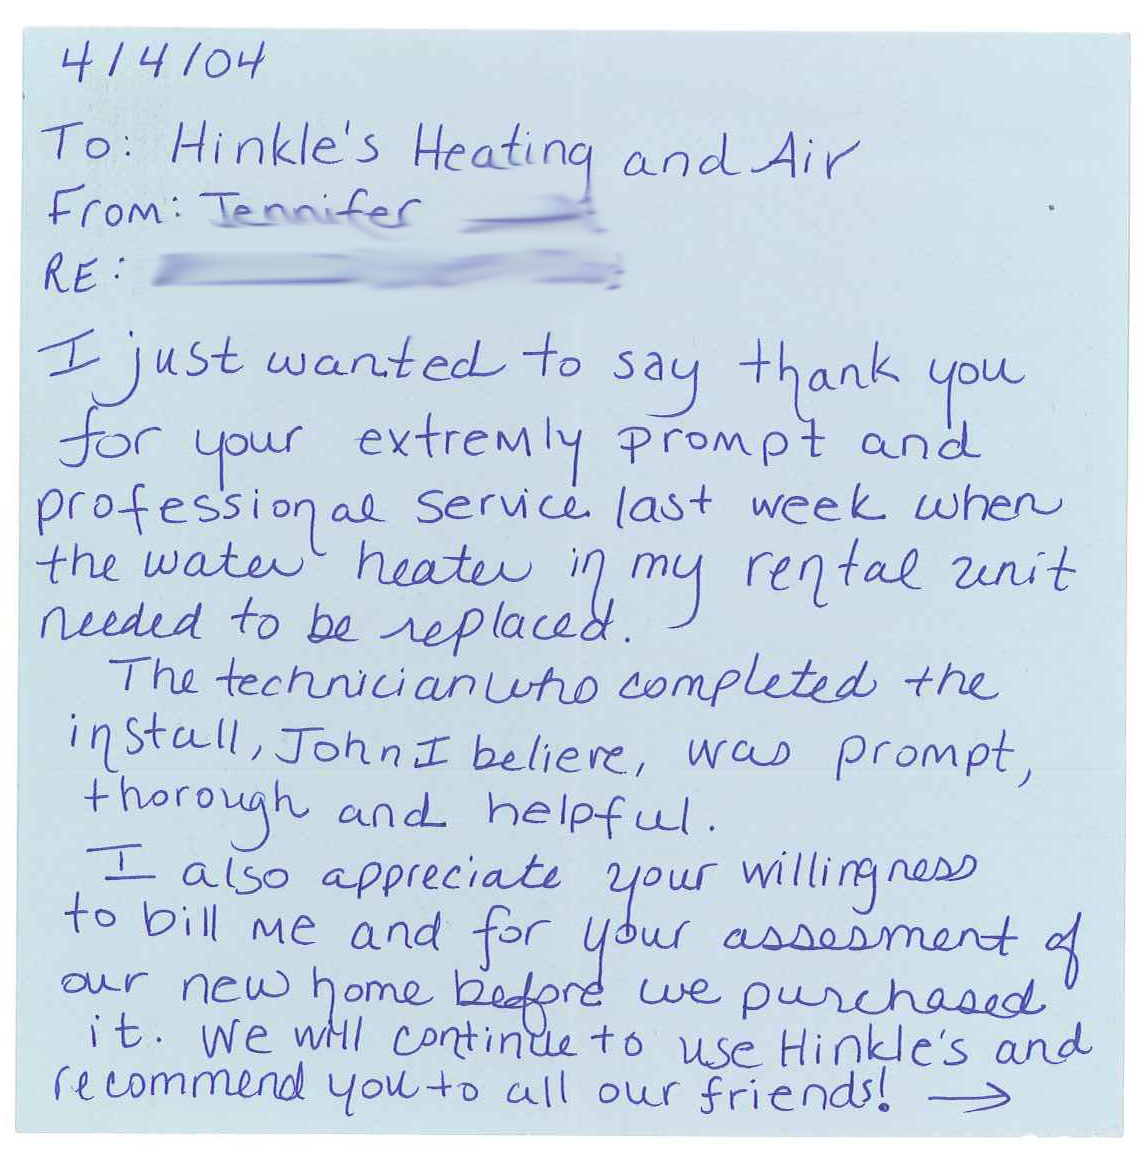 4/4/04
To: Hinkle's Heating and Air
From: Jennifer
RE:
I just wanted to say thank you
for your extremly prompt and
professional service last week when
the water heater in my rental unit
needed to be replaced.
The technician who completed the
install, John I believe, was prompt,
thorough and helpful.
I also appreciate your willingness
to bill me and for your assesment of
our new home before we purchased
it. We will continue to use Hinkle's and
recommend you to all our friends! →